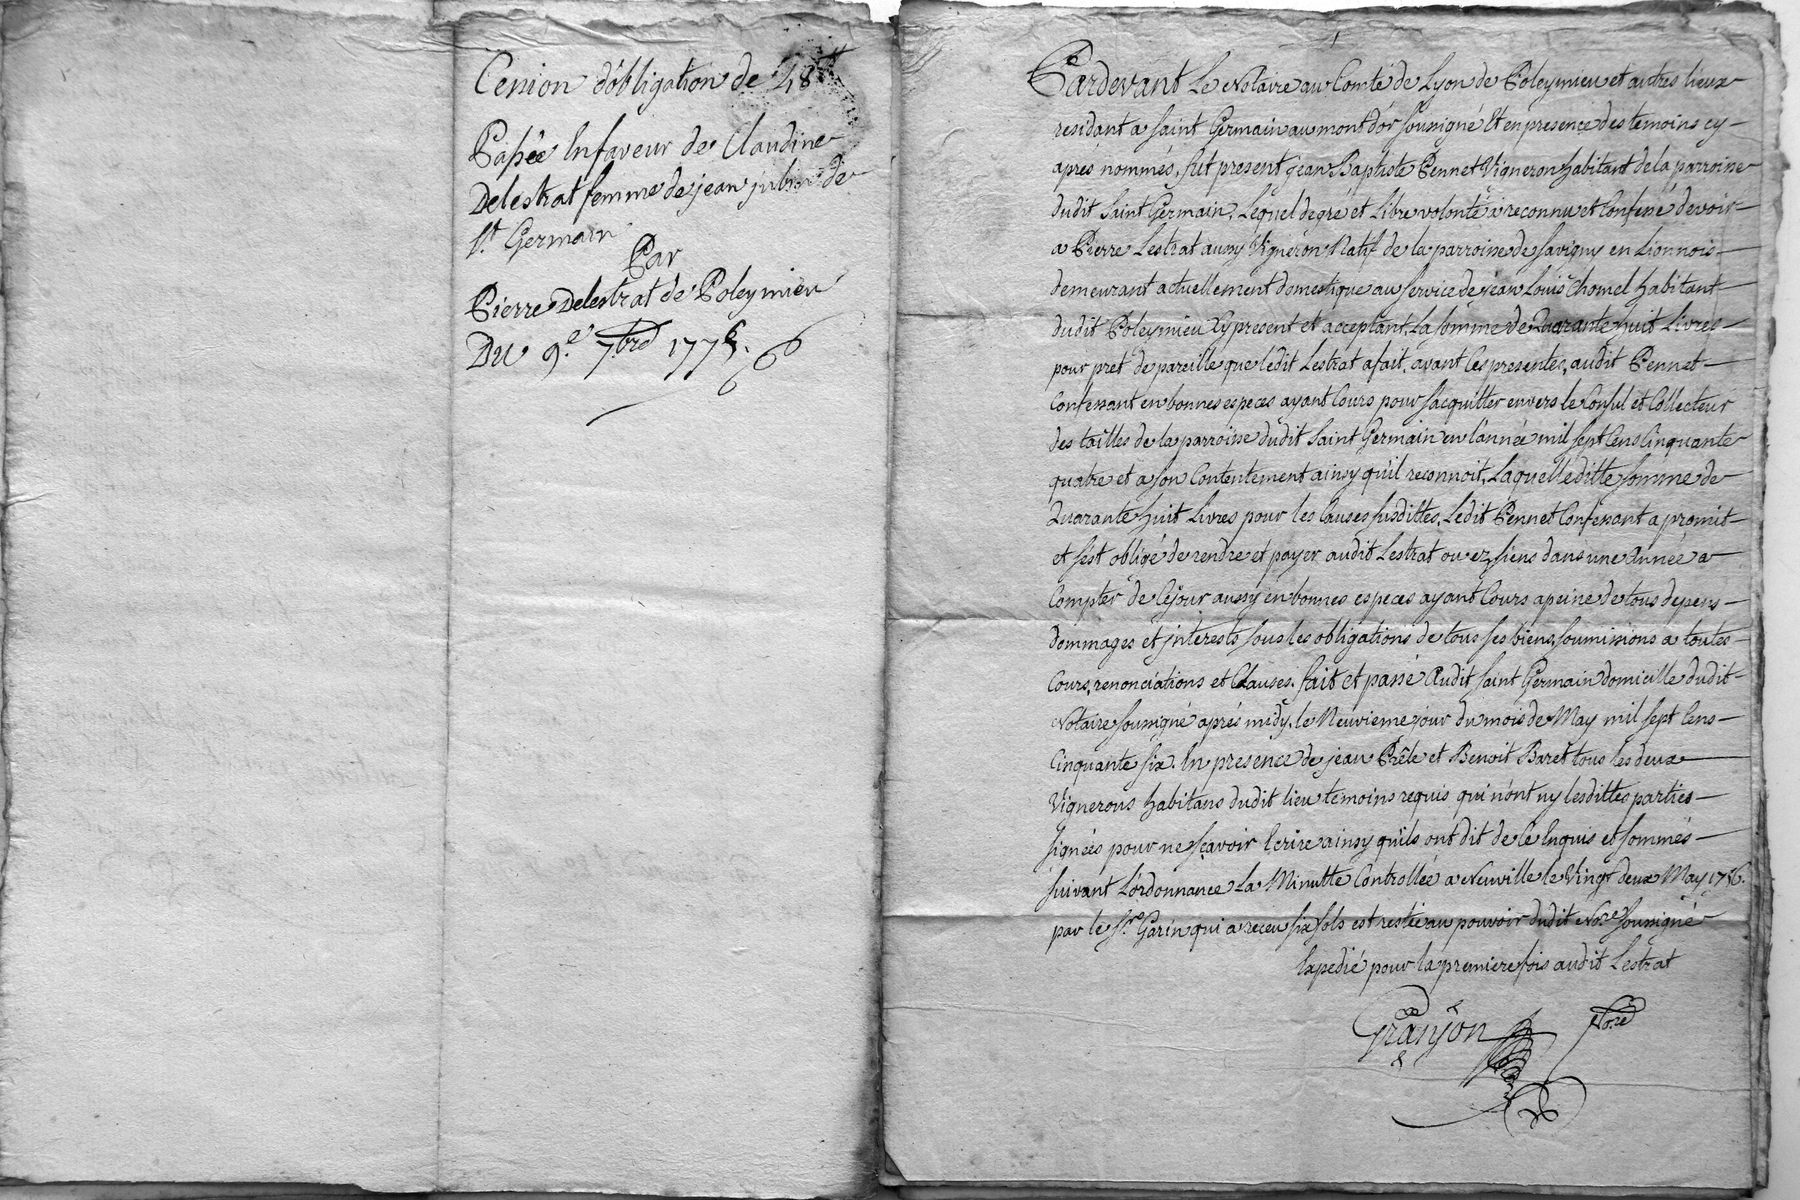 Cession d'obligation de 48ᵗᵗ
Passée En faveur de Claudine
Delestrat femme de jean de
Sᵗ. Germain
Par
Pierre Delestrat de Poleymieu
Du 9.ᵉ 7.bre
Pardevant Le Notaire au Comté de Lyon de Poleymieu et autres lieux
residant a Saint Germain au mont d'or soussigné Et en presence des temoins cy-
aprés nommés, fut present jean Baptiste Pennet Vigneron habitant de la parroisse
dudit Saint Germain, Lequel de gré et Libre volonté à reconnu et Confessé devoir
a Pierre Lestrat aussy Vigneron Natif de la parroisse de Savigny en Lionnois
demeurant actuellement domestique au service de jean Louis Chomel habitant
dudit Poleymieu Cy present et acceptant, La somme de Quarante huit Livres
pour pret de pareille que ledit Lestrat a fait, avant Ces presentes, audit Pennet
Confessant en bonnes especes ayant Cours pour s'acquitter envers le Consul et Collecteur
des tailles de la parroisse dudit Saint Germain en l'année mil sept Cens Cinquante
quatre et a son Contentement ainsy qu'il reconnoit, Laquelle ditte somme de
Quarante huit Livres pour les Causes susdittes, Ledit Pennet Confessant a promit
et s'est obligé de rendre et payer audit Lestrat ou ez siens dans une Année a
Compter de Ce jour aussy en bonnes especes ayant Cours a peine de tous depens
dommages et jnterests sous les obligations de tous ses biens, soumissions a toutes
Cours, renonciations et Clauses. fait et passé Audit Saint Germain domicille dudit
Notaire soussigné aprés midy, le Neuvieme jour du mois de May mil sept Cens
Cinquante six. En presence de jean Prêle et Benoit Baret tous les deux
Vignerons habitans dudit lieu temoins requis qui n'ont ny lesdittes parties
signées pour ne sçavoir Ecrire ainsy qu'ils ont dit de Ce Enquis et sommés
suivant L'ordonnance La Minutte Controllée a Neuville le Vingt deux May 1756.
par le Sʳ. Garin qui a receu six sols est restée au pouvoir dudit No.re soussigné
Expedié pour la premiere fois audit Lestrat
Granjon No.re